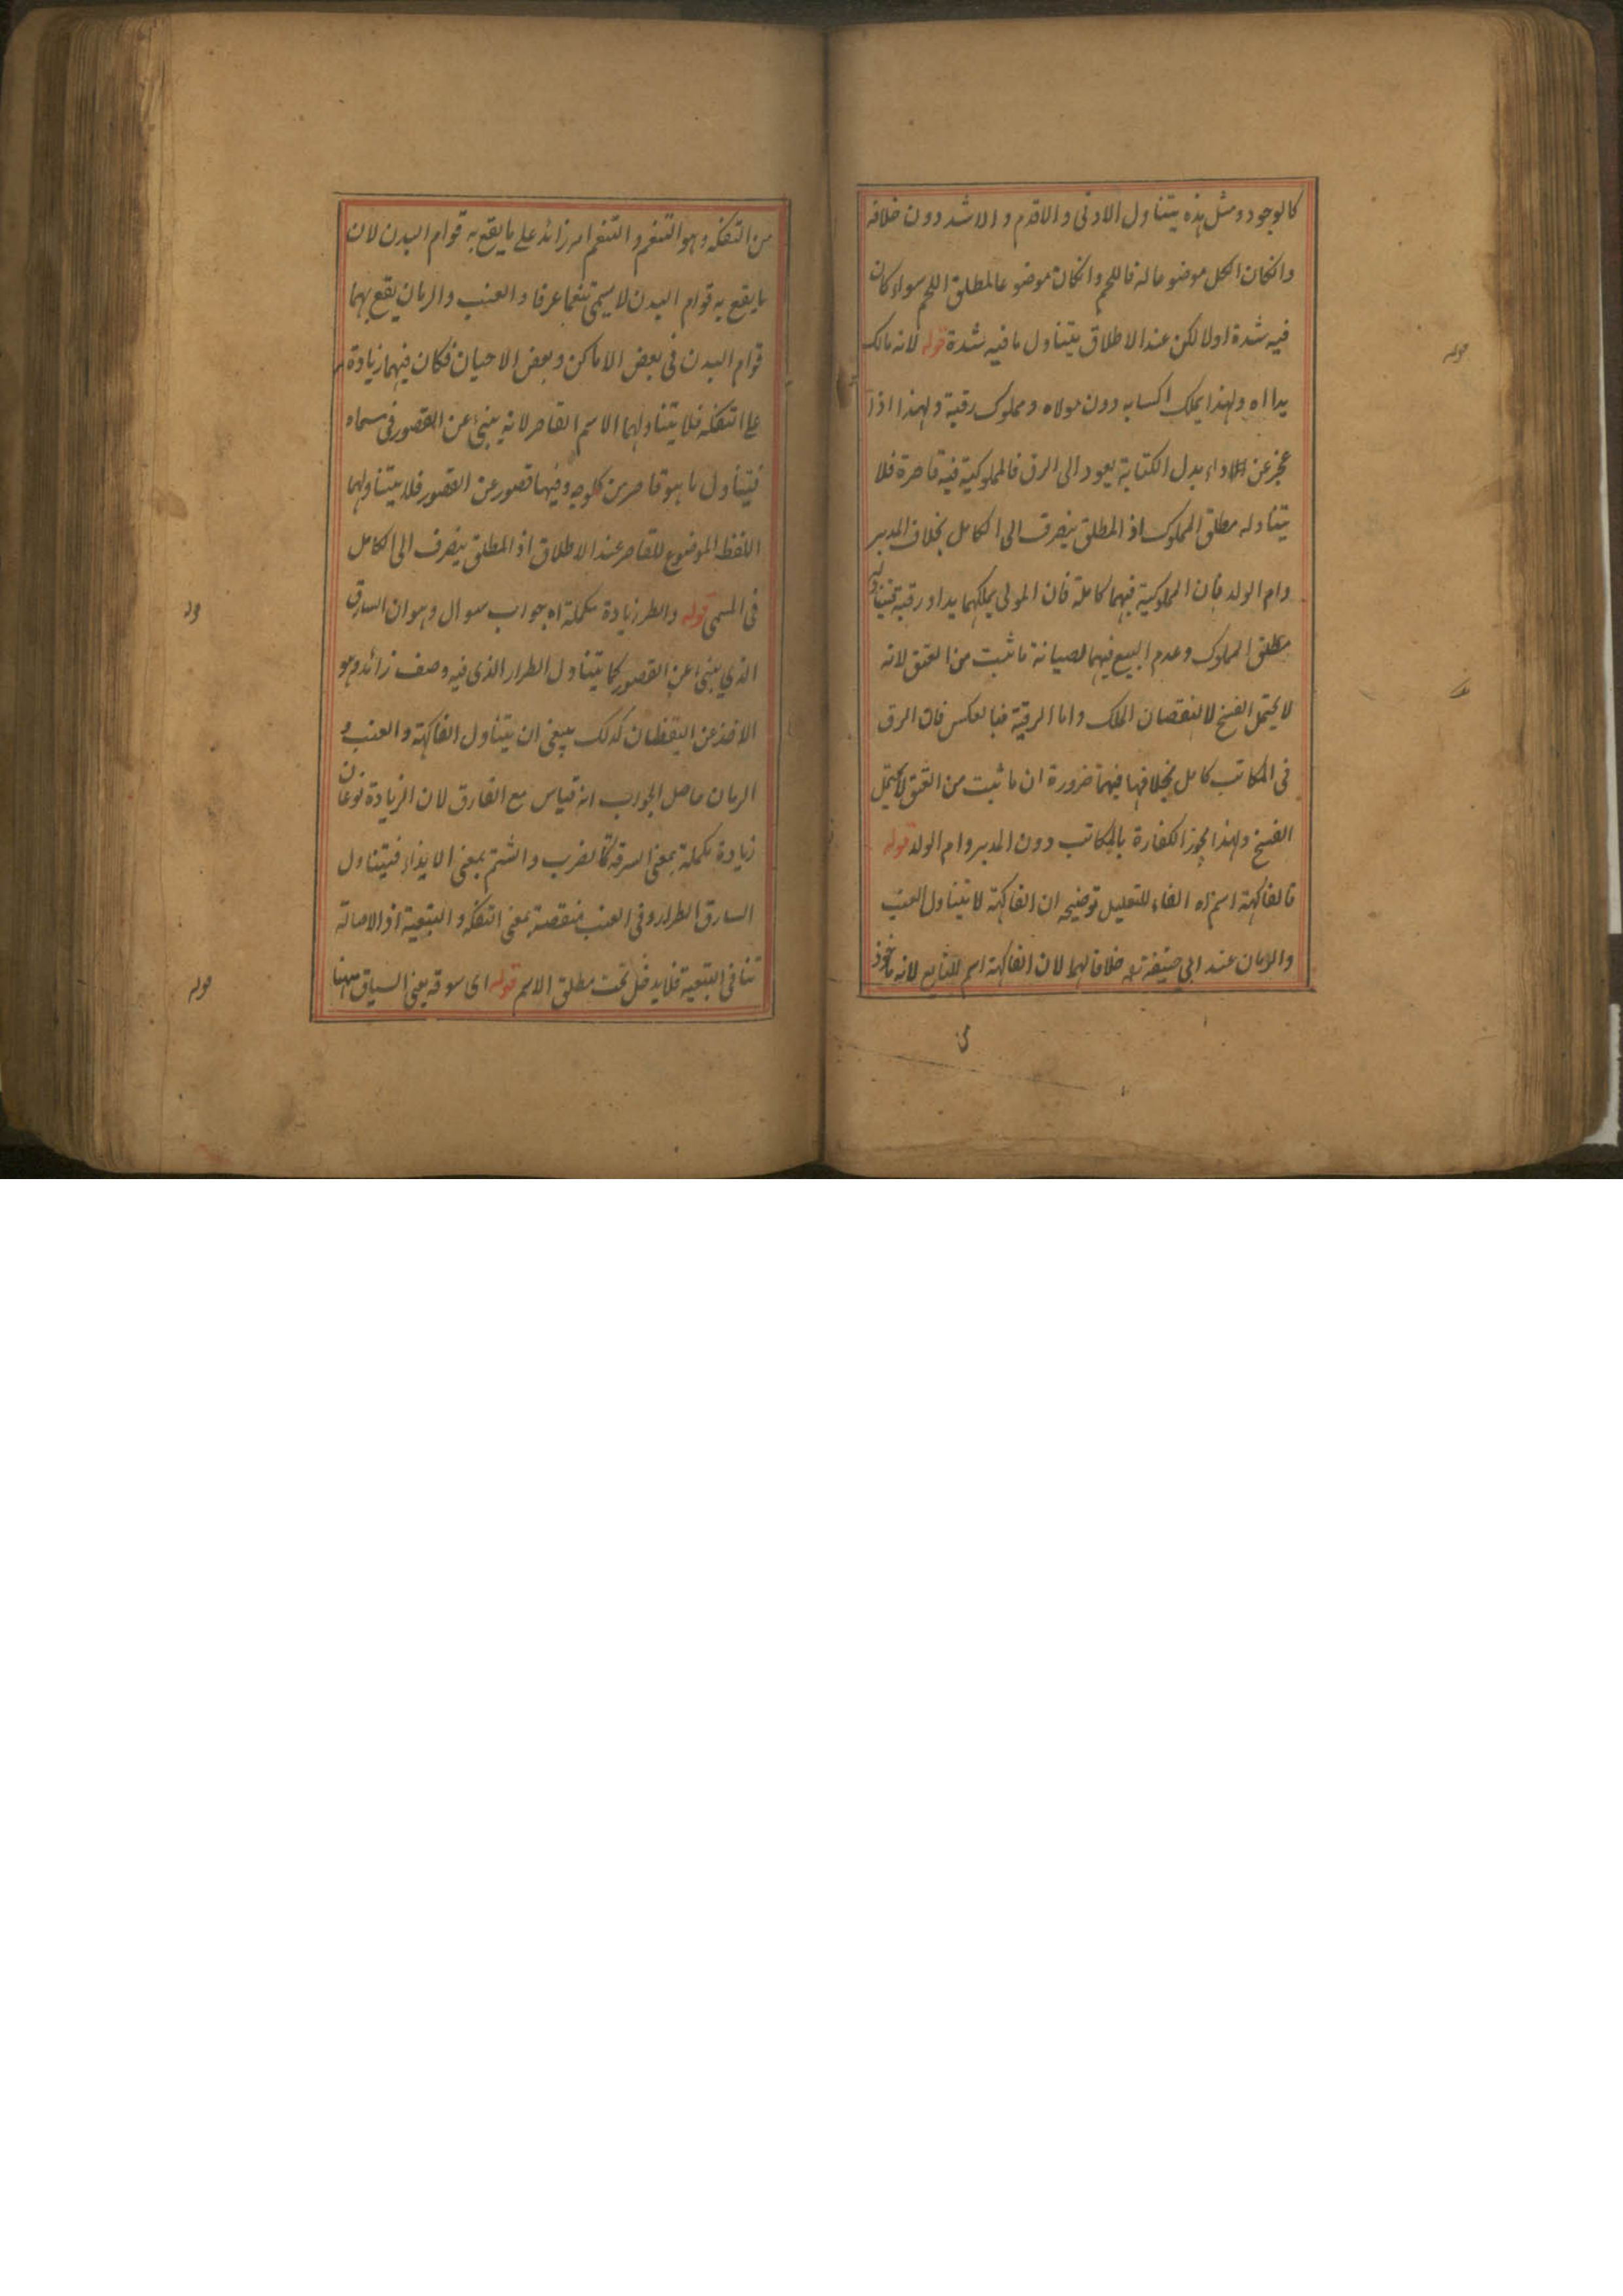 كالوجود ومثل هذه يتناول الادنى والاقدم والاشد دون خلافه
وانكان الكل موضوعا له فاللحم وانكان موضوعا لمطلق اللحم سواء كان
فيه شدة اولا لكن عند الاطلاق يتناول ما فيه شدة قوله لانه مالك
يدا اه ولهذا يملك اكسابه دون مولاه ومملوك رقبة ولهذا اذا
عجز عن اداء بدل الكتابة يعود الى الرق فالمملوكية فيه قاصرة فلا
يتناوله مطلق المملوك اذ المطلق ينصرف الى الكامل بخلاف المدبر
وام الولد فان المملوكية فيهما كاملة فان المولى يملكهما يدا ورقبة فيتناوله
مطلق المملوك وعدم البيع فيهما لصيانة ما ثبت من العتق لانه
لا يحتمل الفسخ لا لنقصان الملك واما الرقية فبالعكس فان الرق
فى المكاتب كامل بخلافها فيهما ضرورة ان ما ثبت من العتق لا يحتمل
الفسخ ولهذا يجوز الكفارة بالمكاتب دون المدبر وام الولد قوله
فالفاكهة اسم اه الفاء للتعليل توضيحه ان الفاكهة لا يتناول العنب
والرمان عند ابي حنيفة خلافا لهما لان الفاكهة اسم للتابع لانه ماخوذ
من التفكه وهو التنعم والتنعم امر زائد على ما يقع به قوام البدن لان
ما يقع به قوام البدن لا يسمى تنعما عرفا والعنب والرمان يقع بهما
قوام البدن فى بعض الاماكن وبعض الاحيان فكان فيهما زيادة
على التفكه فلا يتناولهما الاسم القاصر لانه ينبئ عن القصور فى مسماه
فيتناول ما هو قاصر من كل وجه وفيهما قصور عن القصور فلا يتناولهما
اللفظ الموضوع للقاصر عند الاطلاق اذ المطلق ينصرف الى الكامل
فى المسمى قوله والطر زيادة مكملة اه جواب سوال وهو ان السارق
الذي ينبئ عن القصور كما يتناول الطرار الذى فيه وصف زائد وهو
الاخذ عن اليقظان كذلك ينبغى ان يتناول الفاكهة والعنب و
الرمان حاصل الجواب انه قياس مع الفارق لان الزيادة نوعان
زيادة مكملة بمعنى السرقة كالضرب والشتم بمعنى الايذاء فيتناول
السارق الطرار وفى العنب منقصة بمعنى التفكه والتبعية اذ الاصالة
تنافى التبعية فلا يدخل تحت مطلق الاسم قوله اى سوقه يعنى السياق ههنا
قوله
قوله